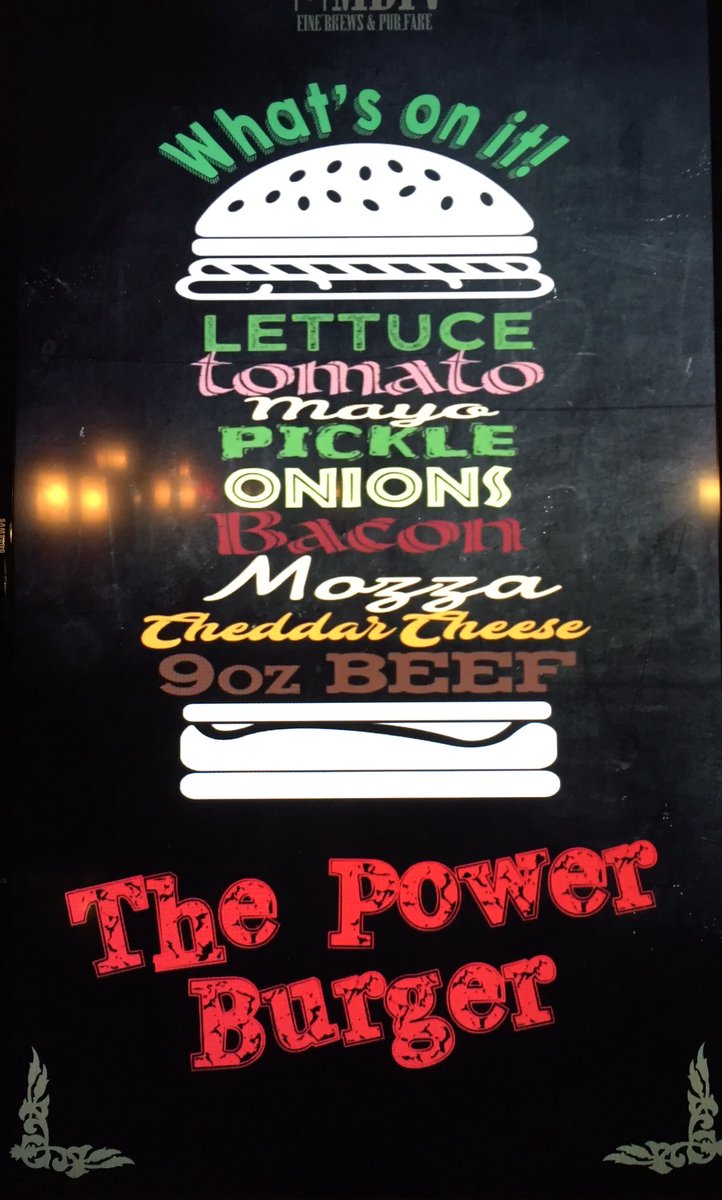 FINE BREWS & PUB FARE
What's on it!
LETTUCE
tomato
Mayo
PICKLE
ONIONS
Bacon
Mozza
Cheddar Cheese
9oz BEEF
The Power
Burger
SAMSUNG